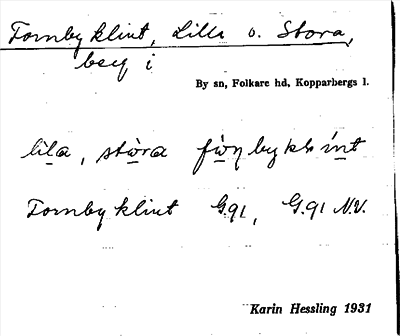 Tornby klint, Lilla o. Stora,
bsq i
By sn, Folkare hd, Kopparbergs l.
lila, stòra
Tornby klint G.91, G.91 N.V.
Karin Hessling 1931